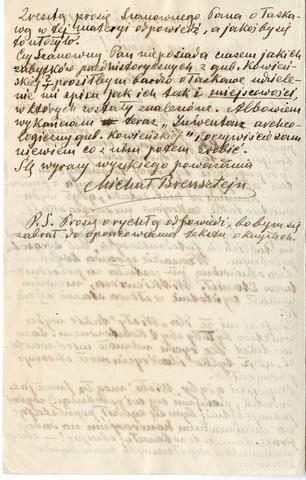 Zresztą proszę Szanownego Pana o łaska-
wą w tej materyi odpowiedź, a jakoś by się
to ułożyło.
Czy Szanowny Pan nie posiada czasem jakich
zabytków przedhistorycznych z gub. Kowień-
skiej? prosiłbym bardzo o łaskawe udziele-
nie mi spisu jak ich tak i miejscowości,
w których zostały znalezione. Albowiem
wykańczam teraz "Inwentarz archeo-
logiczny gub. Kowieńskiej" i oczywiście sam
nie wiem co z nim potem zrobić.
Z wyrazami wysokiego poważania
Michał Brensztejn
P.S. Proszę o rychłą odpowiedź, bo bym się
zabrał do opracowania tekstu o